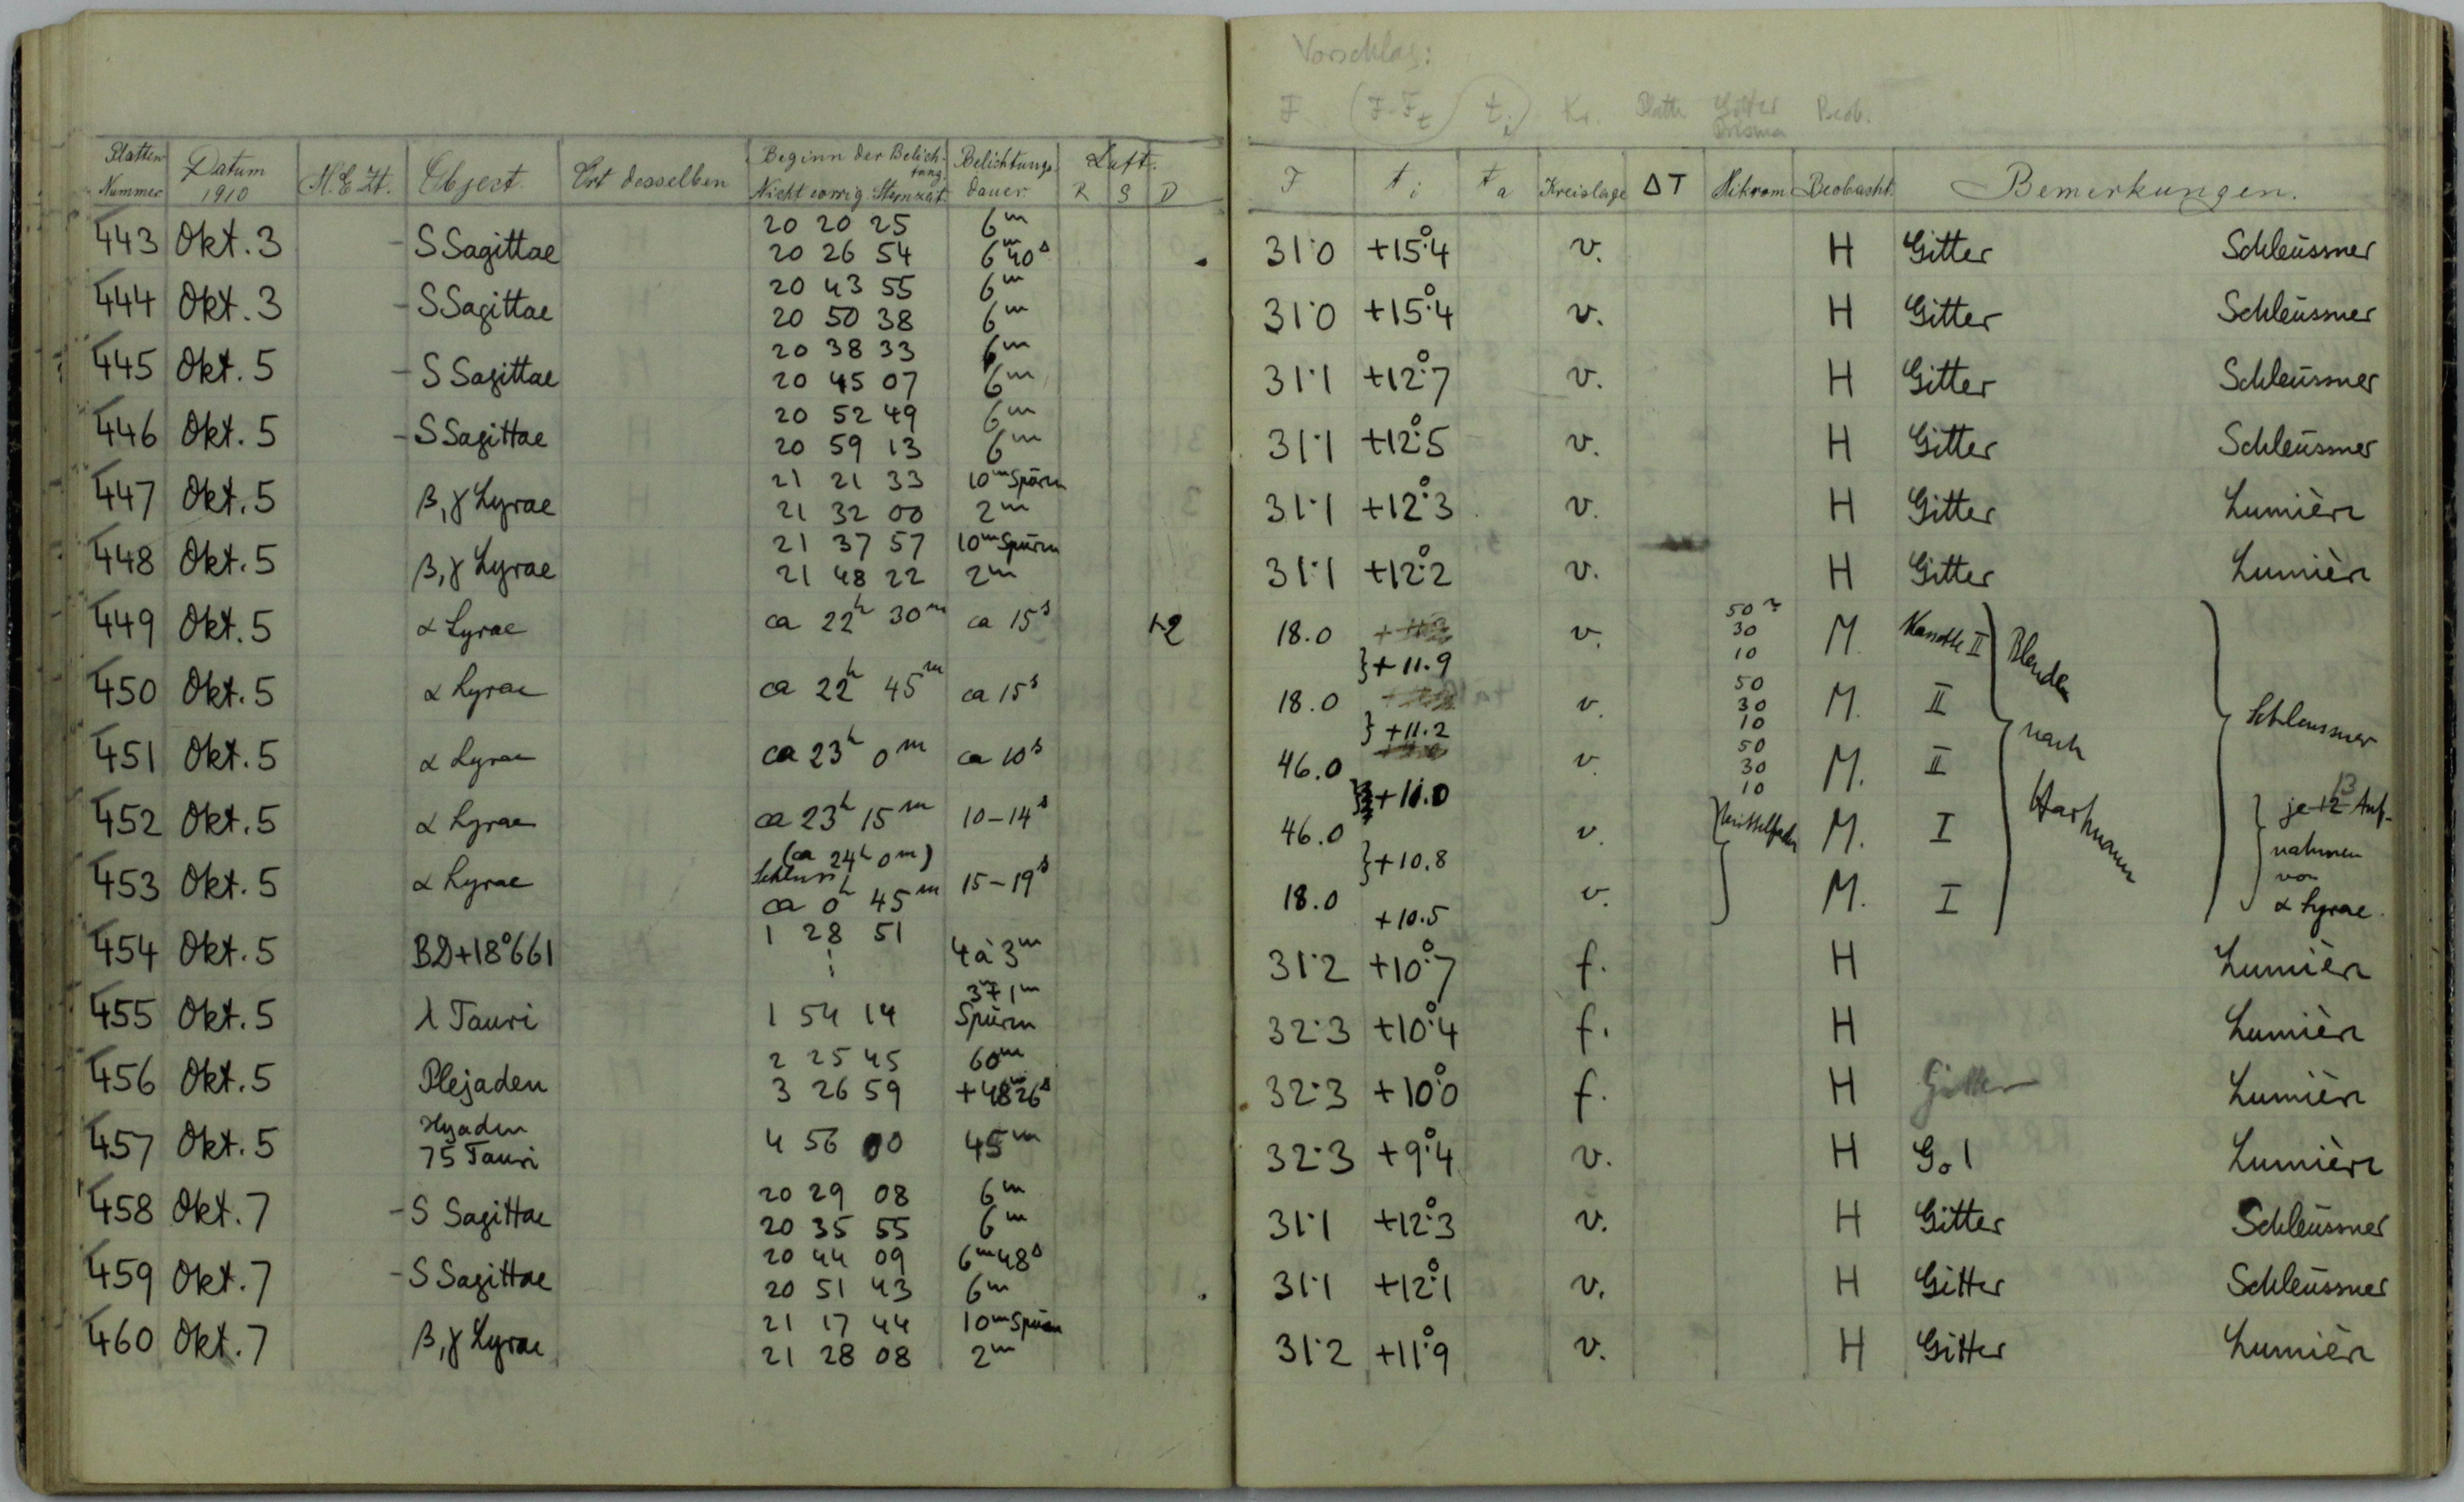 Vorschlag:
F (F-Ft) ti Kr. Platte Gitter Prisma Beob.
Platten Nummer Datum 1910 M.E.Zt. Object Ort desselben Beginn der Belichtung Nicht corrig. Sternzeit Belichtungsdauer Luft. R S D F ti ta Kreislage ΔT Mikrom Beobacht. Bemerkungen.
443 Okt. 3 -S Sagittae 20 20 25 6m
20 26 54 6m40s 31.0 +15°.4 v. H Gitter Schleüssner
444 Okt. 3 -S Sagittae 20 43 55 6m
20 50 38 6m 31.0 +15°.4 v. H Gitter Schleüssner
445 Okt. 5 -S Sagittae 20 38 33 6m
20 45 07 6m 31.1 +12°.7 v. H Gitter Schleüssner
446 Okt. 5 -S Sagittae 20 52 49 6m
20 59 13 6m 31.1 +12°.5 v. H Gitter Schleüssner
447 Okt. 5 β,γ Lyrae 21 21 33 10m Spuren
21 32 00 2m 31.1 +12°.3 v. H Gitter Lumière
448 Okt. 5 β,γ Lyrae 21 37 57 10m Spuren
21 48 22 2m 31.1 +12°.2 v. H Gitter Lumière
449 Okt. 5 α Lyrae ca 22h 30m ca 15s 1-2 18.0 v. 50 30 10 M. II Blenden
} +11.9
450 Okt. 5 α Lyrae ca 22h 45m ca 15s 18.0 v. 50 30 10 M. II Schleussner
} +11.2 nach
451 Okt. 5 α Lyrae ca 23h 0m ca 10s 46.0 v. 50 30 10 M. II
} +11.0 Hartmann
452 Okt. 5 α Lyrae ca 23h 15m 10-14s 46.0 v. Mittelfaden M. I je 12 13 Auf-
(ca 24h 0m) } +10.8 nahmen
453 Okt. 5 α Lyrae Schluss ca 0h 45m 15-19s 18.0 v. M. I von
+10.5 α Lyrae.
454 Okt. 5 BD+18°661 1 28 51 4 à 3m 31.2 +10°.7 f. H Lumière
455 Okt. 5 λ Tauri 1 54 14 3m+1m Spuren 32.3 +10°.4 f. H Lumière
456 Okt. 5 Plejaden 2 25 45 60m
3 26 59 +48m26s 32.3 +10°.0 f. H Gitter Lumière
457 Okt. 5 Hyaden
75 Tauri 4 56 00 45m 32.3 +9°.4 v. H G.1 Lumière
458 Okt. 7 -S Sagittae 20 29 08 6m
20 35 55 6m 31.1 +12°.3 v. H Gitter Schleüssner
459 Okt. 7 -S Sagittae 20 44 09 6m48s
20 51 43 6m 31.1 +12°.1 v. H Gitter Schleüssner
460 Okt. 7 β,γ Lyrae 21 17 44 10m Spuren
21 28 08 2m 31.2 +11°.9 v. H Gitter Lumière